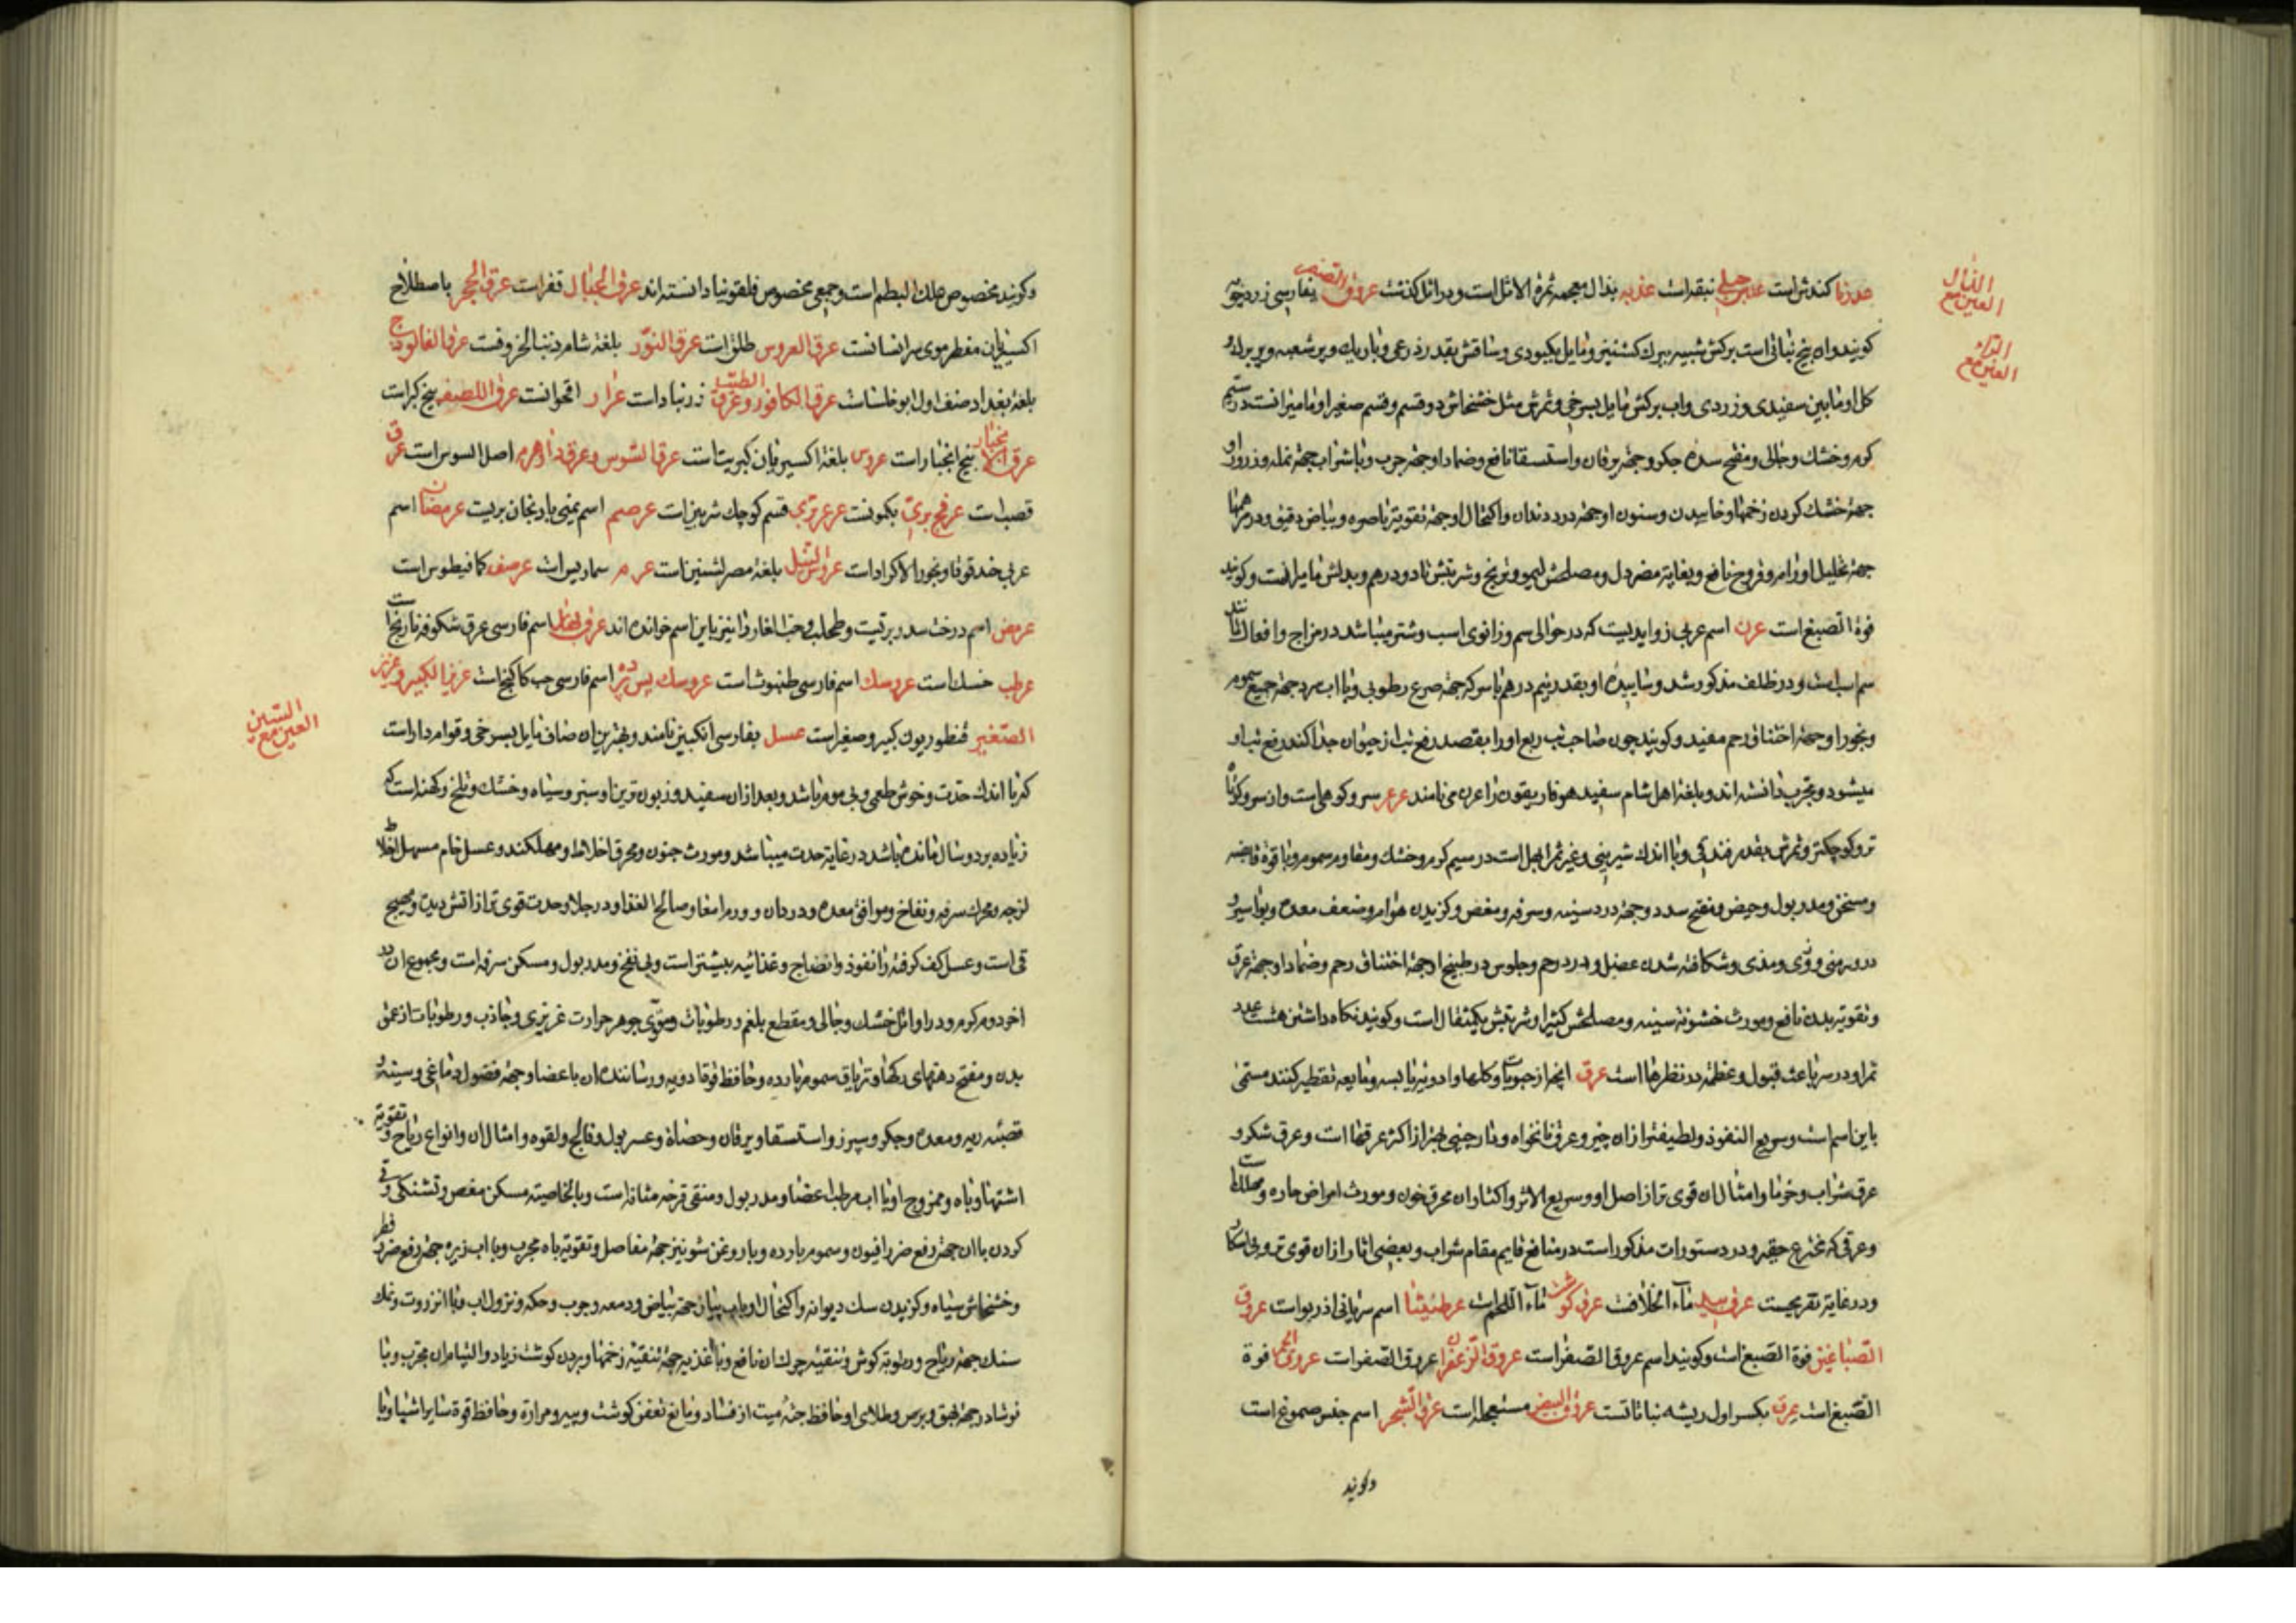 العین مع الذال
العین مع الراء
کندش است عدس جبلی نیقه است عذبه بذال معجمه ثمرة الاثل است و در اثل گذشت عروق الصفر بفارسی زردچوبه
کویند و ان بیخ نباتی است برکش شبیه ببرک کشنیز و مایل بکبودی و ساقش بقدر ذرعی و باریک و پر شعبه و پر برک و
کل او مابین سفیدی و زردی و اب برکش مایل بسرخی و ثمرش مثل خشخاش دو قسم و قسم صغیر او مامیران است در سیم
کرم و خشک و جالی و مفتح سده جکر و جهة یرقان و استسقا نافع و ضماد او جهة جرب و با شراب جهة نمله و ذرور او
جهة خشک کردن زخمها و خاییدن و سنون او جهة درد دندان و اکتحال او جهة تقویة باصره و بیاض رقیق و در مرهمها
جهة تحلیل اورام و قروح نافع و بغایة مضر دل و مصلحش لیمو و ترنج و شربتش تا دو درهم و بدلش مامیران است و کویند
فوة الصبغ است عرن اسم عربی زوایدیست که در حوالی سم و زانوی اسب و شتر میباشد در مزاج و افعال مانند
سم اسب است و در ظلف مذکور شد و ساییده او بقدر نیم درهم با سرکه جهة صرع رطوبی و با اب سرد جهة جمیع سموم
و بخور او جهة اختناق رحم مفید و کویند چون صاحب تب ربع او را بقصد رفع تب از حیوان جدا کند رفع تب او
میشود و مجرب دانسته اند و بلغة اهل شام سفید هو فاریقون را عرن می نامند عرعر سرو کوهی است و از سرو کوتاه
تر و کوچکتر و ثمرش بقدر فندقی و با اندک شیرینی و غیر ثمر ابهل است در سیم کرم و خشک و مقاوم سموم و با قوة قابضه
و مسخن و مدر بول و حیض و مفتح سدد و جهة درد سینه و سرفه و مغص و کزیدن هوام و ضعف معده و بواسیر و
درور منی و ودی و مذی و شکافته شدن عضل و درد رحم و جلوس در طبیخ او جهة اختناق رحم و ضماد او جهة عرق
و تقویة بدن نافع و مورث خشونة سینه و مصلحش کثیرا و شربتش یکمثقال است و کویند نکاه داشتن هشت عدد
ثمر او در سر باعث قبول و عظمة در نظرها است عرق انچه از حبوبات و کلها و ادویة یابسه و مایعه تقطیر کنند مسمی
باین اسم است و سریع النفوذ و لطیفتر از ان چیز و عرق نانخواه و دارچینی بهتر از اکثر عرقها است و عرق شکر و
عرق شراب و خرما و امثال ان قوی تر از اصل او و سریع الاثر و اکثار ان محرق خون و مورث امراض حاره و مهلک است
و عرقی که مخترع حقیر و در دستورات مذکور است در منافع قایم مقام شراب و بعضی اثار از ان قوی تر و بی اسکار
و در غایة تفریحست عرق بید ماء الخلافت عرق کوشت ماء اللحم است عرطنیثا اسم سریانی اذربو است عروق
الصباغین فوة الصبغ است و کویند اسم عروق الصفر است عروق الزعفران عروق الصفر است عروق الحمر فوة
الصبغ است عرق بکسر اول ریشه نباتاتست عروق البیض مستعجله است عرق الشجر اسم جنس صموغ است
وکویند
و کویند مخصوص علک البطم است و جمعی مخصوص قلفونیا دانسته اند عرق الجبال قفر است عرق الحجر باصطلاح
اکسیریان مقطر موی سر انسانست عرق العروس طلق است عرق النور بلغة شام ذنب الخروفست عرق الفالوذج
بلغة بغداد صنف اول ابوخلسا است عرق الکافور و عرق الطیب زرنباد است عرار اقحوانست عرق اللصیف بیخ کبر است
عرق انجبار بیخ انجبار است عروس بلغة اکسیریان کبریتست عرق السوس و عرق داوهرم اصل السوس است عرق
قصب است عرفج بری بکمونست عرعر بری قسم کوچک شربین است عرصم اسم یمنی بادنجان بریست عرمضان اسم
عربی حندقوقا و بخور الاکراد است عرائس النیل بلغة مصر لشنین است عرم سماریس است عرصف کمافیطوس است
عرمض اسم درخت سدر بریست و طحلب و حب الغار را نیز باین اسم خوانده اند عرق بهار اسم فارسی عرق شکوفه نارنج است
عرطب خسک است عروسک اسم فارسی طنبوث است عروسک پس پرده اسم فارسی حب کاکنج است عزیز الکبیر و عزیز
الصغیر قنطوریون کبیر و صغیر است عسل بفارسی انکبین نامند و بهترین ان صاف مایل بسرخی و قوام دار است
العین مع السین
که با اندک حدت و خوش طعم و بی موم باشد و بعد از ان سفید و زبون ترین او سبز و سیاه و خشک و تلخ و کهنه است که
زیاده بر دو سال مانده باشد در غایة حدت میباشد و مورث جنون و محرق اخلاط و مهلکند و عسل خام مسهل اخلاط
لزجه و محرک سرفه و نفاخ و موافق معده و درد ان و ورم امعا و صالح الغذا و در جلا و حدت قوی تر از اتش دیده و مهیج
قی است و عسل کف کرفته را نفوذ و انضاج و غذائیه بیشتر است و بی نفخ و مدر بول و مسکن سرفه است و مجموع ان در
اخر دوم کرم و در اوائل خشک و جالی و مقطع بلغم و رطوبات و مقوی جوهر حرارت غریزی و جاذب رطوبات از عمق
بدن و مفتح دهنهای رکها و تریاق سموم بارده و حافظ قوة ادویه و رساننده ان باعضا و جهة فضول دماغی و سینه و
قصبه ریه و معده و جکر و سپرز و استسقا و یرقان و حصاة و عسر بول و فالج و لقوه و امثال ان و انواع ریاح و تقویة
اشتها و باه و ممزوج او با اب مرطب اعضا و مدر بول و منقی قرحه مثانه است و بالخاصیة مسکن مغص و تشنکی و قی
کردن با ان جهة رفع ضرر افیون و سموم بارده و با روغن شونیز جهة مفاصل و تقویة باه مجرب و با اب زیره جهة رفع ضرر فطر
و خشخاش سیاه و کزیدن سک دیوانه و اکتحال او با اب پیاز جهة بیاض و دمعه و جرب و حکه و نزول اب و با انزروت و نمک
سنک جهة ریاح و رطوبة کوش و تنقیه چرک ان نافع و با اغذیه جهة تنقیه زخمها و بردن کوشت زیاد و التیام ان مجرب و با
نوشادر جهة بهق و برص و طلای او حافظ جثه میت از فساد و مانع تعفن کوشت و پیه و مرارة و حافظ قوة سایر اشیا و با